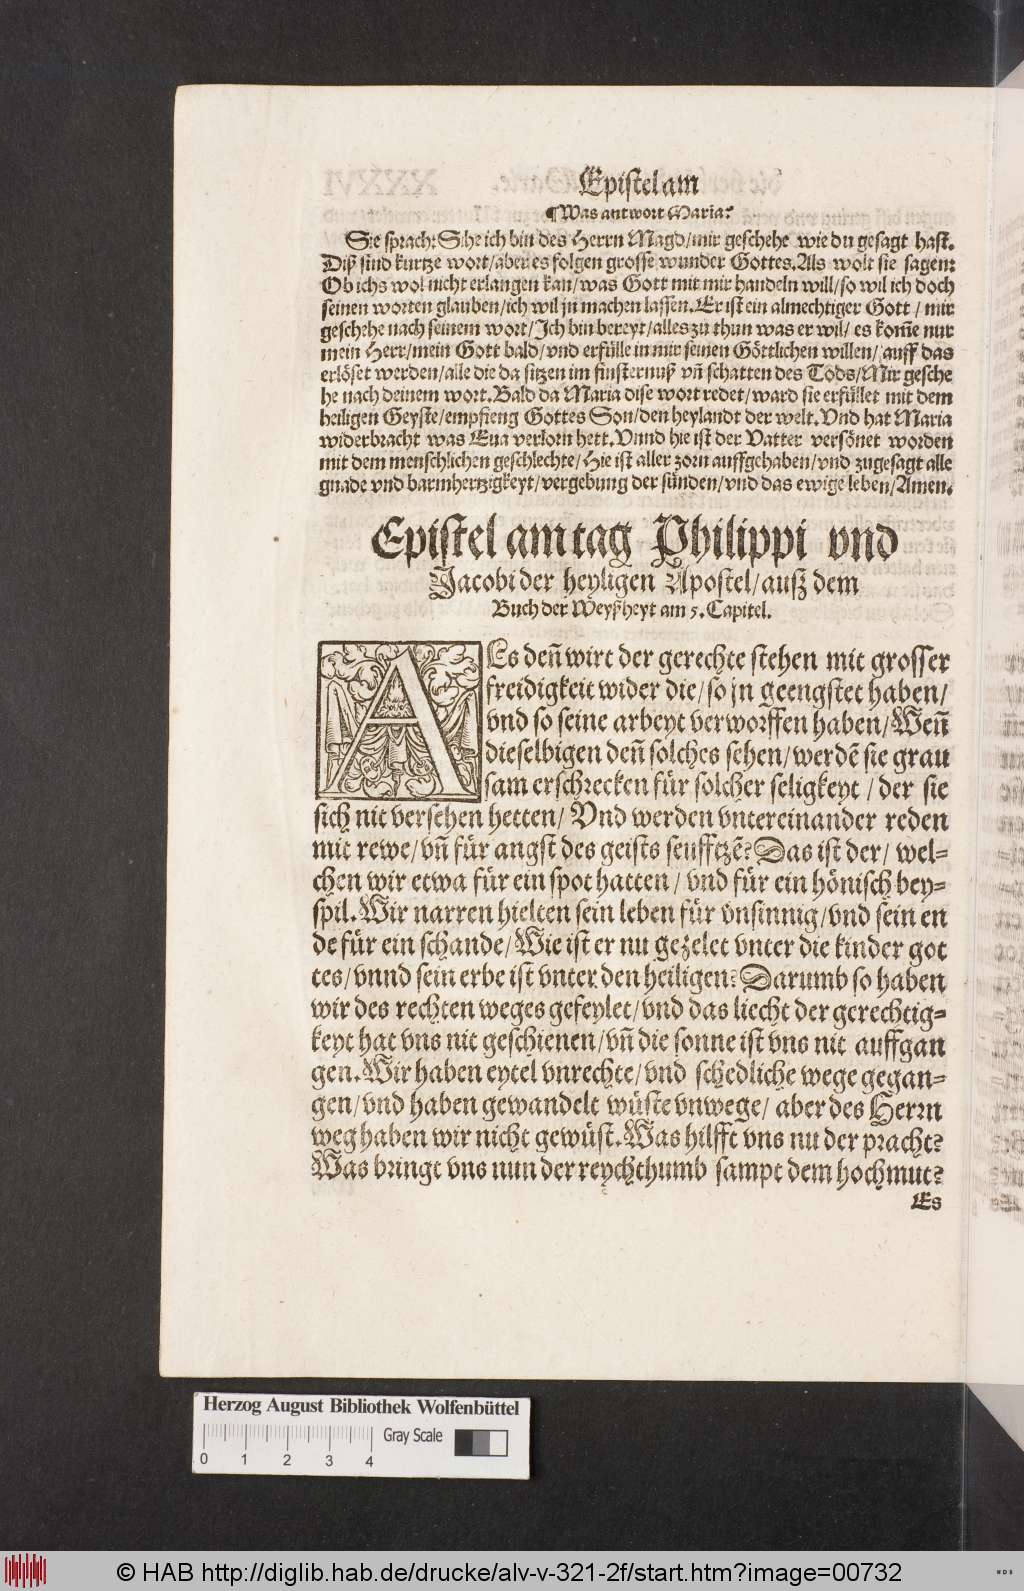 Epistel am
¶Was antwort Maria?
Sie sprach: Sihe ich bin des Herrn Magd/mir geschehe wie du gesagt hast.
Diß sind kurtze wort/aber es folgen grosse wunder Gottes. Als wolt sie sagen:
Ob ichs wol nicht erlangen kan/was Gott mit mir handeln will/so wil ich doch
seinen worten glauben/ich wil jn machen lassen. Er ist ein almechtiger Gott / mir
geschehe nach seinem wort/Ich bin bereyt/alles zu thun was er wil/ es kom̃e nur
mein Herr/mein Gott bald/vnd erfülle in mir seinen Göttlichen willen/ auff das
erlöset werden/alle die da sitzen im finsternuß vñ schatten des Tods/Mir gesche
he nach deinem wort. Bald da Maria dise wort redet/ward sie erfüllet mit dem
heiligen Geyste/empfieng Gottes Son/den heylandt der welt. Vnd hat Maria
widerbracht was Eua verlorn hett. Vnnd hie ist der Vatter versönet worden
mit dem menschlichen geschlechte/Hie ist aller zorn auffgehaben/vnd zugesagt alle
gnade vnd barmhertzigkeyt/vergebung der sünden/vnd das ewige leben/Amen.
Epistel am tag Philippi vnd
Jacobi der heyligen Apostel/auß dem
Buch der Weyßheyt am 5. Capitel.
ALs deñ wirt der gerechte stehen mit grosser
freidigkeit wider die/so jn geengstet haben/
vnd so seine arbeyt verworffen haben/Weñ
dieselbigen deñ solches sehen/werdẽ sie grau
sam erschrecken für solcher seligkeyt / der sie
sich nit versehen hetten/ Vnd werden vntereinander reden
mit rewe/vñ für angst des geists seufftzẽ? Das ist der/ wel-
chen wir etwa für ein spot hatten / vnd für ein hönisch bey-
spil. Wir narren hielten sein leben für vnsinnig/vnd sein en
de für ein schande/Wie ist er nu gezelet vnter die kinder got
tes/vnnd sein erbe ist vnter den heiligen? Darumb so haben
wir des rechten weges gefeylet/vnd das liecht der gerechtig-
keyt hat vns nit geschienen/vñ die sonne ist vns nit auffgan
gen. Wir haben eytel vnrechte/vnd schedliche wege gegan-
gen/vnd haben gewandelt wüste vnwege/ aber des Herrn
weg haben wir nicht gewüst. Was hilfft vns nu der pracht?
Was bringt vns nun der reychthumb sampt dem hochmut?
Es
Herzog August Bibliothek Wolfenbüttel
Gray Scale
0 1 2 3 4
© HAB http://diglib.hab.de/drucke/alv-v-321-2f/start.htm?image=00732